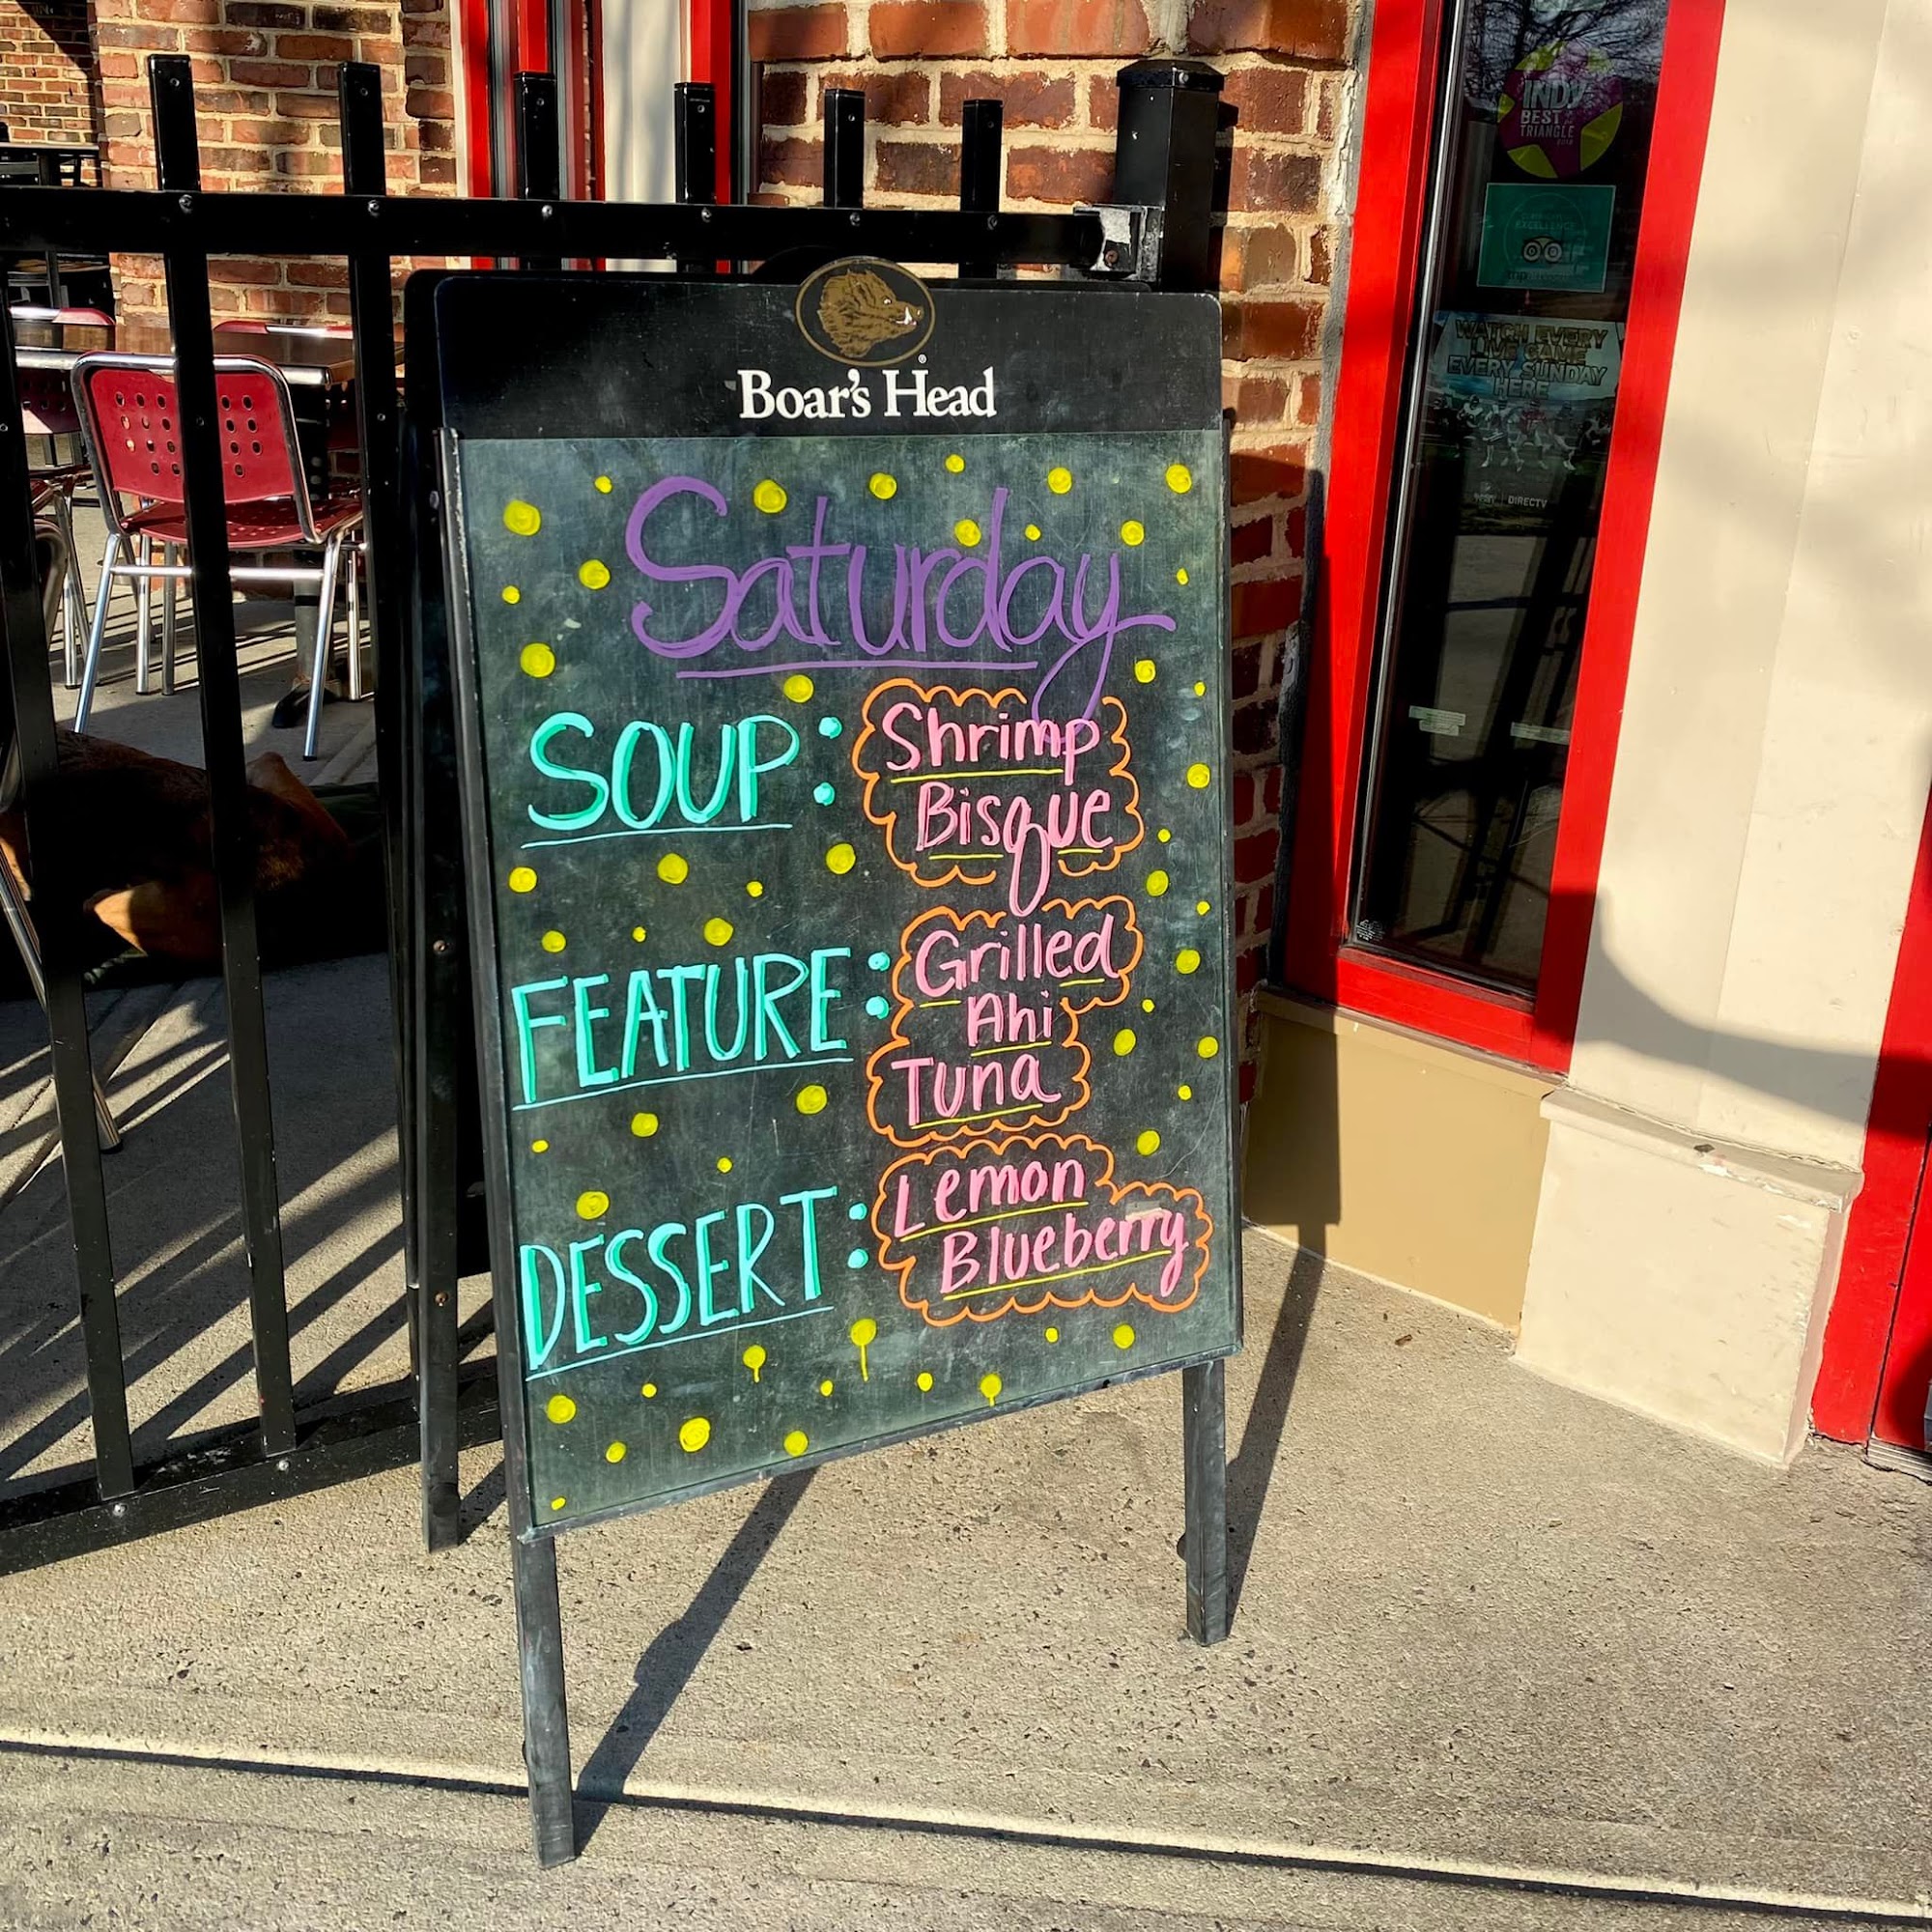 INDY
BEST
TRIANGLE
EXCELLENCE
WATCH EVERY
LIVE GAME
EVERY SUNDAY
HERE
DIRECTV
Boar's Head
®
Saturday
SOUP: Shrimp
Bisque
FEATURE: Grilled
Ahi
Tuna
DESSERT: Lemon
Blueberry